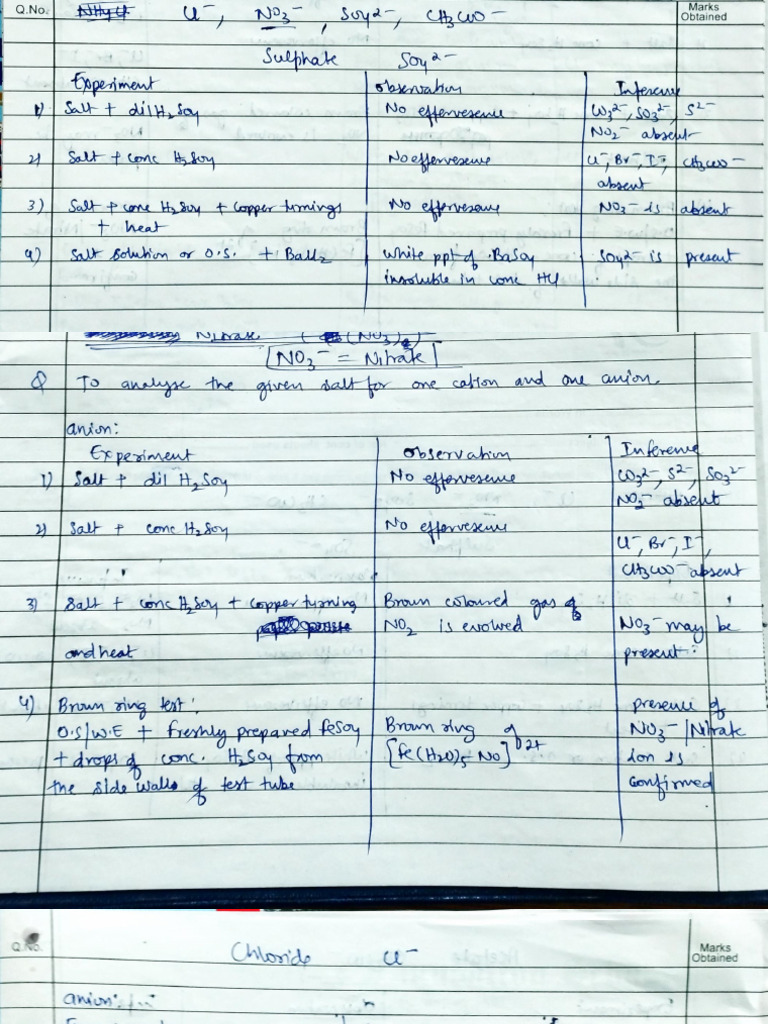 Q.No. Cl⁻, NO₃⁻, SO₄²⁻, CH₃COO⁻ Marks Obtained
Sulphate SO₄²⁻
Experiment Observation Inference
1) Salt + dil H₂SO₄ No effervesence CO₃²⁻, SO₃²⁻, S²⁻
NO₂⁻ absent
2) Salt + conc H₂SO₄ No effervesence Cl⁻, Br⁻, I⁻, CH₃COO⁻
absent
3) Salt + conc H₂SO₄ + copper turnings No effervesence NO₃⁻ is absent
+ heat
4) Salt solution or O.S. + BaCl₂ White ppt of BaSO₄ SO₄²⁻ is present
insoluble in conc HCl
Nitrate (NO₃)₂
NO₃⁻ = Nitrate
Q To analyse the given salt for one cation and one anion.
anion:
Experiment Observation Inference
1) Salt + dil H₂SO₄ No effervesence CO₃²⁻, S²⁻, SO₃²⁻
NO₂⁻ absent
2) Salt + conc H₂SO₄ No effervesence
Cl⁻, Br⁻, I⁻,
CH₃COO⁻ absent
3) Salt + conc H₂SO₄ + copper turning Brown coloured gas of
NO₂ is evolved NO₃⁻ may be
and heat present.
4) Brown ring test: presence of
O.S/W.E + freshly prepared FeSO₄ Brown ring of NO₃⁻/Nitrate
+ drops of conc. H₂SO₄ from [Fe(H₂O)₅ NO]²⁺ ion is
the side walls of test tube confirmed
Q.No. Chloride Cl⁻ Marks Obtained
anion: